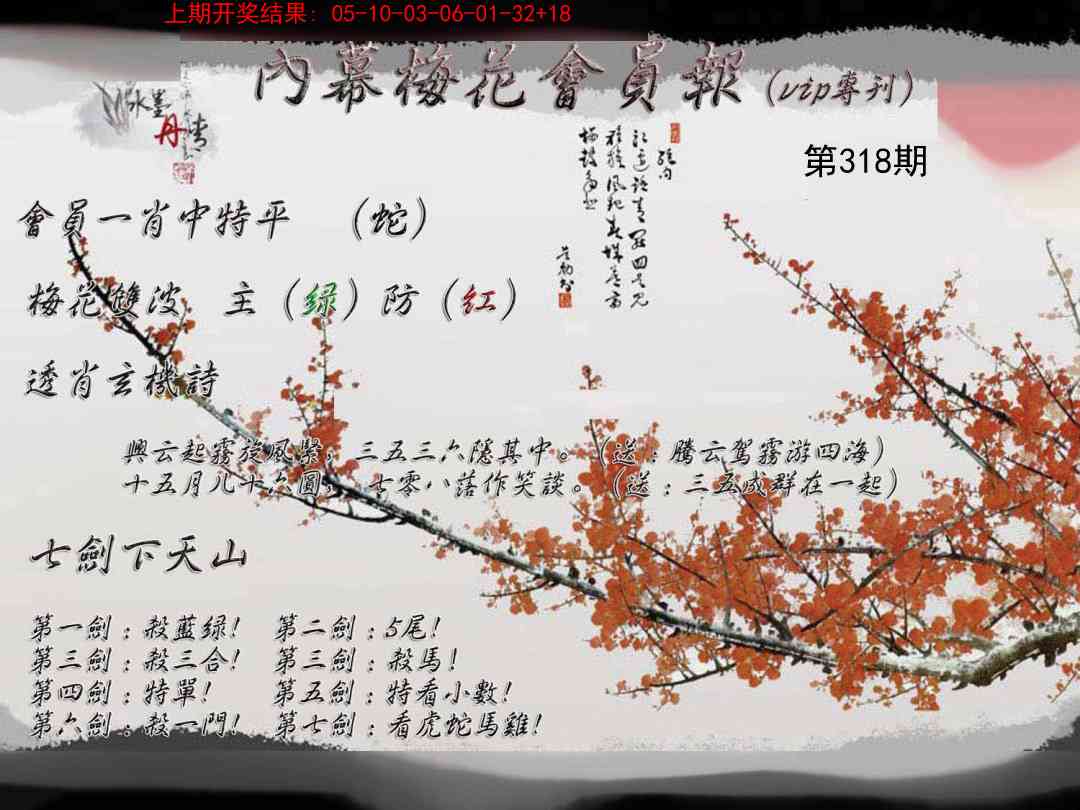 上期开奖结果: 05-10-03-06-01-32+18
內幕梅花會員報(vip專刊)
水墨
丹青
第318期
會員一肖中特平 (蛇)
梅花雙波 主(绿)防(红)
透肖玄機詩
興云起霧旋風緊，三五三六隱其中。(送:騰云駕霧游四海)
十五月儿十六圓，七零八落作笑談。(送:三五成群在一起)
七劍下天山
第一劍:殺藍绿! 第二劍:5尾!
第三劍:殺三合! 第三劍:殺馬!
第四劍:特單! 第五劍:特看小數!
第六劍:殺一門! 第七劍:看虎蛇馬雞!